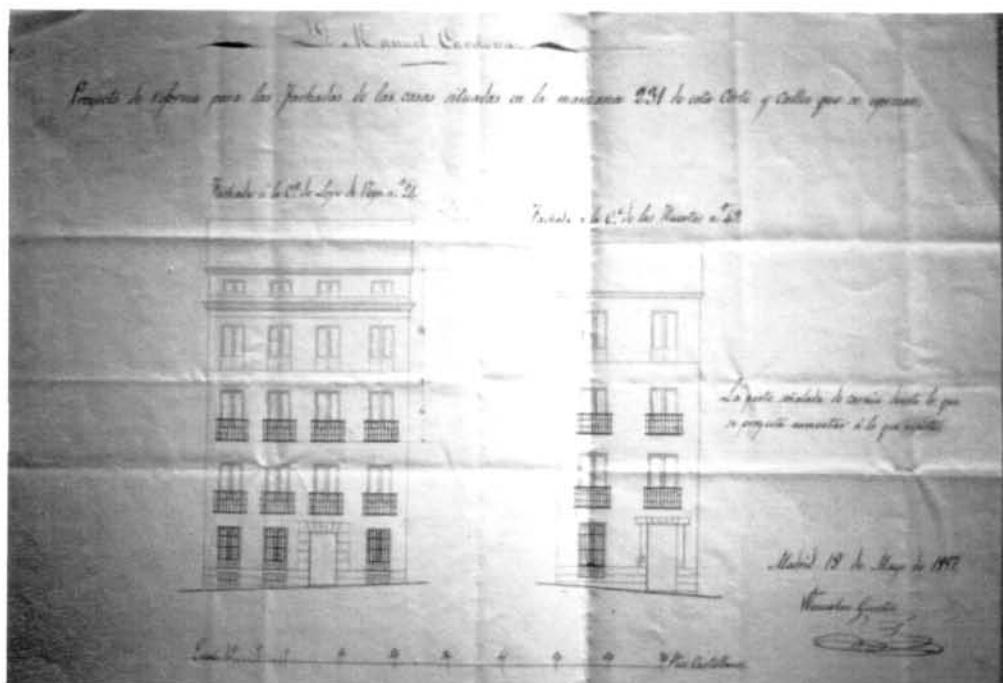 D. Manuel Cardona
Proyecto de reforma para las fachadas de las casas situadas en la manzana 231 de esta Corte y Calles que se expresan.
Fachada á la C.ª de Lope de Vega n.º 21
Fachada á la C.ª de las Huertas n.º
La parte señalada de carmin denota lo que
se proyecta aumentar á lo que existe.
Madrid 18 de Mayo de
Wenceslao
Pies Castellanos